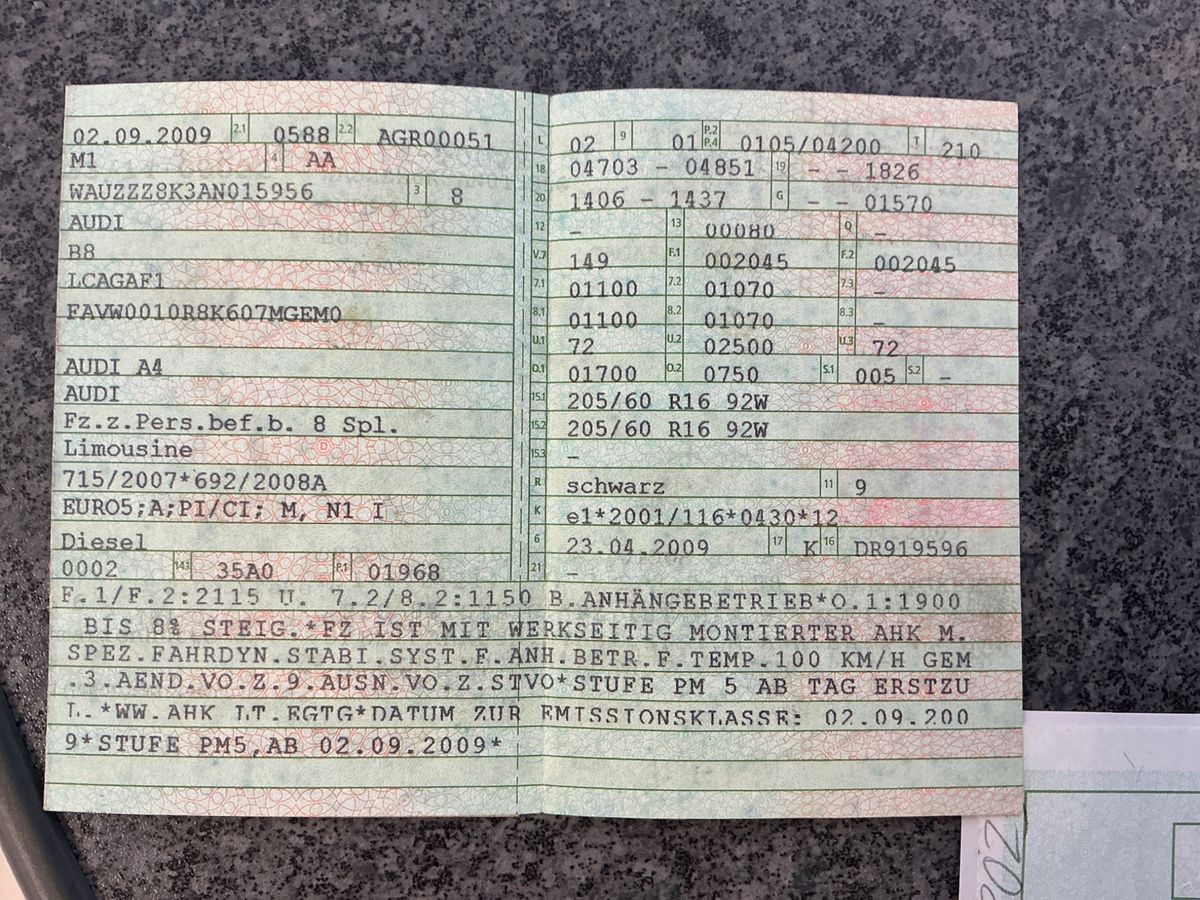 02.09.2009 2.1 0588 2.2 AGR00051
M1 4 AA
WAUZZZ8K3AN015956 3 8
AUDI
B8
LCAGAF1
FAVW0010R8K607MGEM0
AUDI A4
AUDI
Fz.z.Pers.bef.b. 8 Spl.
Limousine
715/2007*692/2008A
EURO5;A;PI/CI; M, N1 I
Diesel
0002 14.1 35A0 P.1 01968
L 02 9 01 P.2 P.4 0105/04200 T 210
18 04703 - 04851 19 - - 1826
20 1406 - 1437 G - - 01570
12 - 13 00080 Q -
V.7 149 F.1 002045 F.2 002045
7.1 01100 7.2 01070 7.3 -
8.1 01100 8.2 01070 8.3 -
U.1 72 U.2 02500 U.3 72
O.1 01700 O.2 0750 S.1 005 S.2 -
15.1 205/60 R16 92W
15.2 205/60 R16 92W
15.3 -
R schwarz 11 9
K e1*2001/116*0430*12
6 23.04.2009 17 K 16 DR919596
21 -
F.1/F.2:2115 U. 7.2/8.2:1150 B.ANHÄNGEBETRIEB*O.1:1900
BIS 8% STEIG.*FZ IST MIT WERKSEITIG MONTIERTER AHK M.
SPEZ.FAHRDYN.STABI.SYST.F.ANH.BETR.F.TEMP.100 KM/H GEM
.3.AEND.VO.Z.9.AUSN.VO.Z.STVO*STUFE PM 5 AB TAG ERSTZU
L.*WW.AHK LT.EGTG*DATUM ZUR EMISSIONSKLASSE: 02.09.200
9*STUFE PM5,AB 02.09.2009*